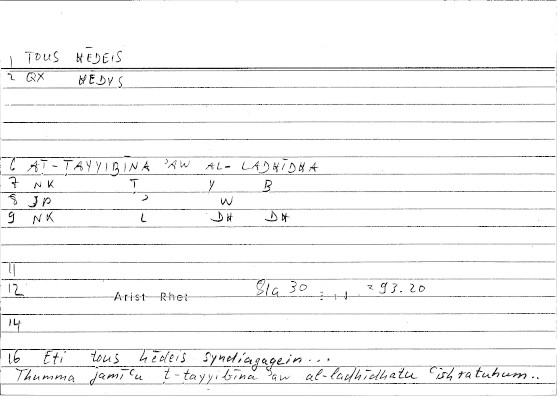 1 TOUS HĒDEIS
2 QX HĒDYS
6 AT-TAYYIBĪNA ʾAW AL-LADHĪDHA
7 NK T Y B
8 JP ʾ W
9 NK L DH DH
11
12 Arist Rhet 81a 30 = 93.20
14
16 Eti tous hēdeis syndiagagein...
Thumma jamīʿu t-tayyibīna ʾaw al-ladhīdhatu ʿishratuhum..